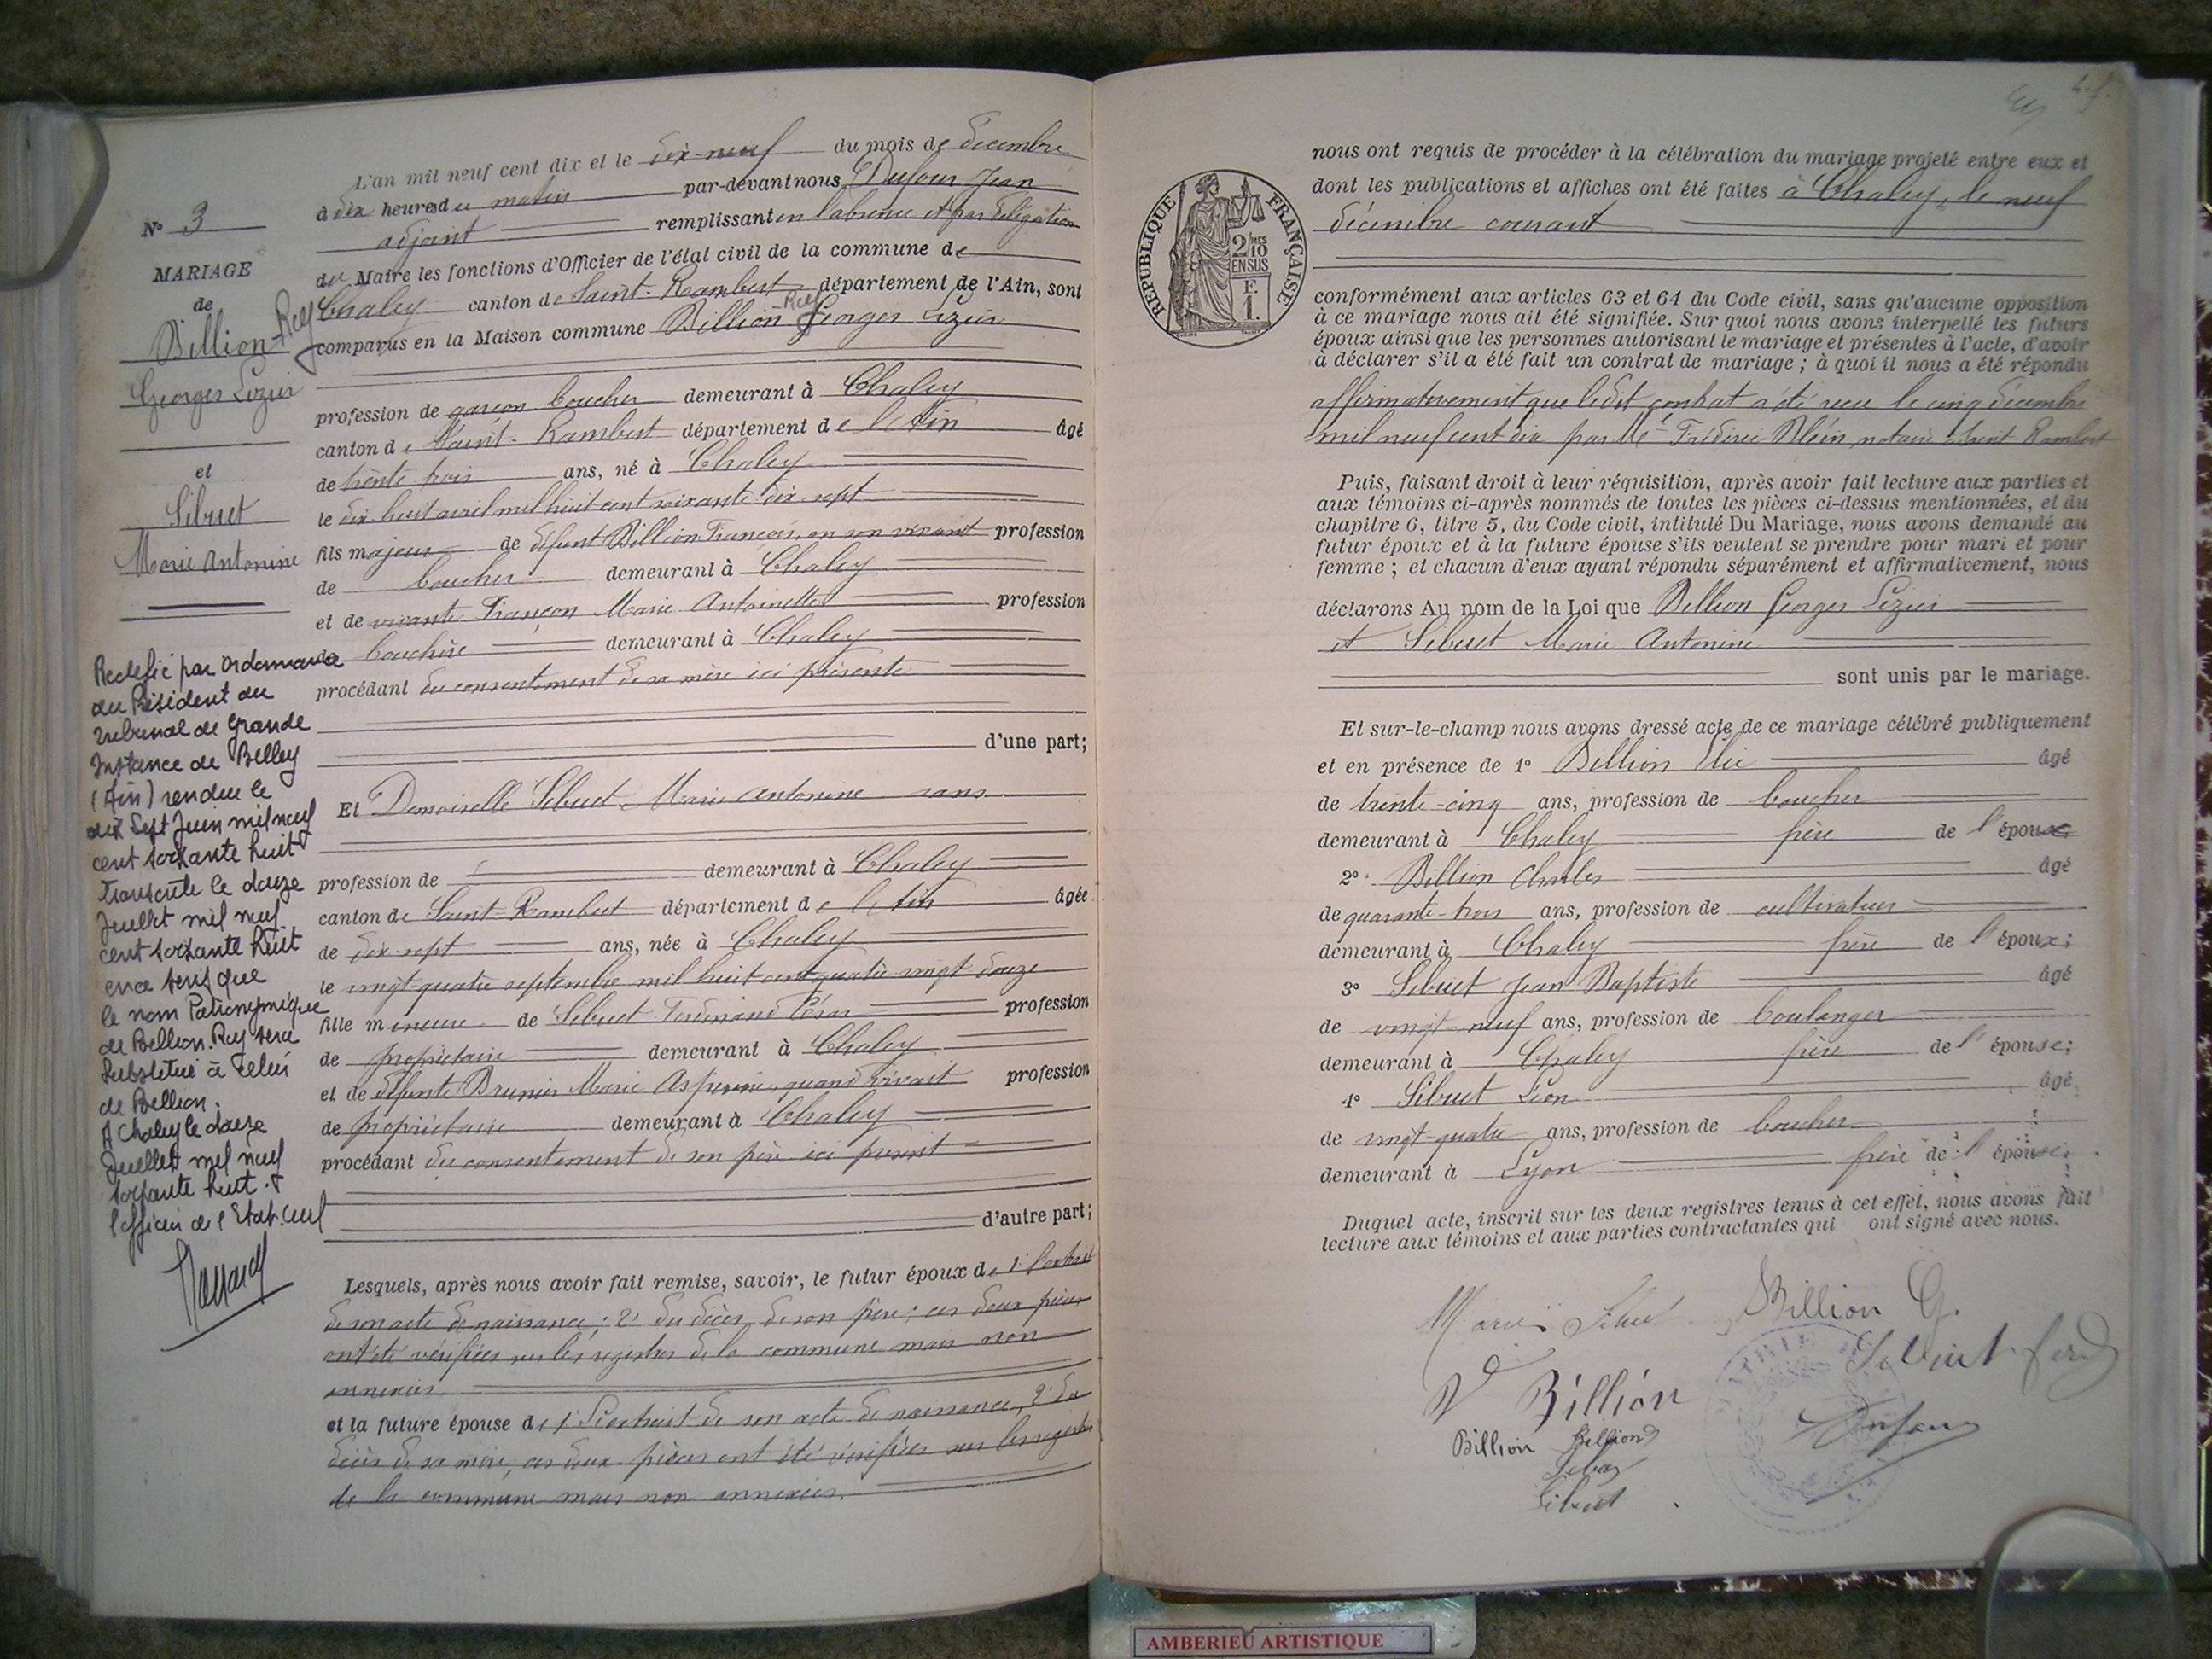 N° 3
MARIAGE
de
Billion-Rey
Georges Lézin
et
Sibuet
Marie Antonine
Rectifié par ordonnance
du Président du
Tribunal de Grande
Instance de Belley
(Ain) rendue le
dix sept Juin mil neuf
cent soixante huit
transcrite le douze
Juillet mil neuf
cent soixante huit
en ce sens que
le nom Patronymique
de Billion-Rey sera
substitué à celui
de Billion.
A Chaley le douze
Juillet mil neuf
soixante huit.
l'officier de l'Etat-civil
L'an mil neuf cent dix et le dix-neuf du mois de décembre
à dix heures du matin par-devant nous Dufour Jean
adjoint remplissant en l'absence et par délégation
du Maire les fonctions d'Officier de l'état civil de la commune de
Chaley canton de Saint-Rambert département de l'Ain, sont
comparus en la Maison commune Billion-Rey Georges Lézin
profession de garçon boucher demeurant à Chaley
canton de Saint-Rambert département de l'Ain âgé
de trente trois ans, né à Chaley
le dix-huit avril mil huit cent soixante-dix-sept
fils majeur de défunt Billion François, en son vivant profession
de boucher demeurant à Chaley
et de vivante Françon Marie Antoinette profession
de bouchère demeurant à Chaley
procédant du consentement de sa mère ici présente
d'une part;
Et Demoiselle Sibuet Marie Antonine sans
profession de demeurant à Chaley
canton de Saint-Rambert département de l'Ain âgée
de dix-sept ans, née à Chaley
le vingt-quatre septembre mil huit cent quatre-vingt-douze
fille mineure de Sibuet Ferdinand César profession
de propriétaire demeurant à Chaley
et de défunte Brunier Marie quand vivait profession
de propriétaire demeurant à Chaley
procédant du consentement de son père ici présent
d'autre part;
Lesquels, après nous avoir fait remise, savoir, le futur époux de 1° l'extrait
de son acte de naissance; 2° du décès de son père; ces deux pièces
ont été vérifiées sur les registres de la commune mais non
annexées
et la future épouse de 1° l'extrait de son acte de naissance, 2° du
décès de sa mère, ces deux pièces ont été vérifiées sur les registres
de la commune mais non annexées.
REPUBLIQUE FRANÇAISE
2/10 MES
EN SUS
F.
1.
nous ont requis de procéder à la célébration du mariage projeté entre eux et
dont les publications et affiches ont été faites à Chaley, le neuf
décembre courant
conformément aux articles 63 et 64 du Code civil, sans qu'aucune opposition
à ce mariage nous ait été signifiée. Sur quoi nous avons interpellé les futurs
époux ainsi que les personnes autorisant le mariage et présentes à l'acte, d'avoir
à déclarer s'il a été fait un contrat de mariage; à quoi il nous a été répondu
affirmativement que ledit contrat a été reçu le cinq décembre
mil neuf cent dix par Me Frédéric Blein, notaire à Saint-Rambert
Puis, faisant droit à leur réquisition, après avoir fait lecture aux parties et
aux témoins ci-après nommés de toutes les pièces ci-dessus mentionnées, et du
chapitre 6, titre 5, du Code civil, intitulé Du Mariage, nous avons demandé au
futur époux et à la future épouse s'ils veulent se prendre pour mari et pour
femme; et chacun d'eux ayant répondu séparément et affirmativement, nous
déclarons Au nom de la Loi que Billion Georges Lézin
et Sibuet Marie Antonine
sont unis par le mariage.
Et sur-le-champ nous avons dressé acte de ce mariage célébré publiquement
et en présence de 1° Billion Elie âgé
de trente-cinq ans, profession de boucher
demeurant à Chaley frère de l'époux
2° Billion Charles âgé
de quarante-trois ans, profession de cultivateur
demeurant à Chaley frère de l'époux;
3° Sibuet Jean Baptiste âgé
de vingt-neuf ans, profession de boulanger
demeurant à Chaley frère de l'épouse;
4° Sibuet Léon âgé
de vingt-quatre ans, profession de boucher
demeurant à Lyon frère de l'épouse.
Duquel acte, inscrit sur les deux registres tenus à cet effet, nous avons fait
lecture aux témoins et aux parties contractantes qui ont signé avec nous.
Marie Sibuet Billion G.
Sibuet Ferd
Ve Billion
Dufour
Billion Billion
Sibuet
Sibuet
AMBERIEU ARTISTIQUE